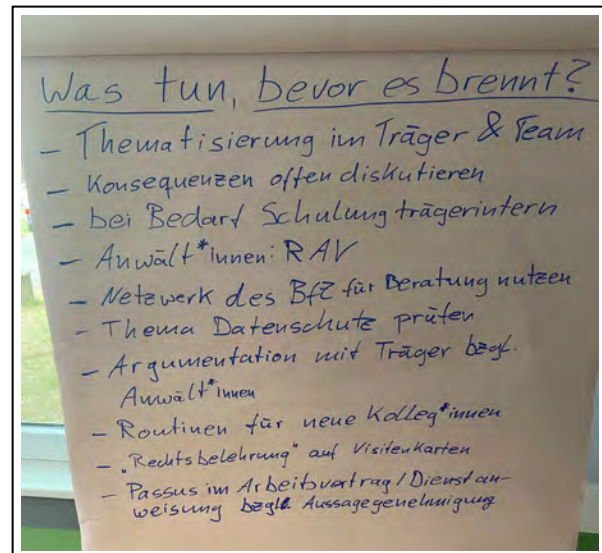 Was tun, bevor es brennt?
- Thematisierung im Träger & Team
- Konsequenzen offen diskutieren
- bei Bedarf Schulung trägerintern
- Anwält*innen: RAV
- Netzwerk des BfZ für Beratung nutzen
- Thema Datenschutz prüfen
- Argumentation mit Träger bzgl.
Anwält*innen
- Routinen für neue Kolleg*innen
- „Rechtsbelehrung" auf Visitenkarten
- Passus im Arbeitsvertrag/Dienstan-
weisung bzgl. Aussagegenehmigung